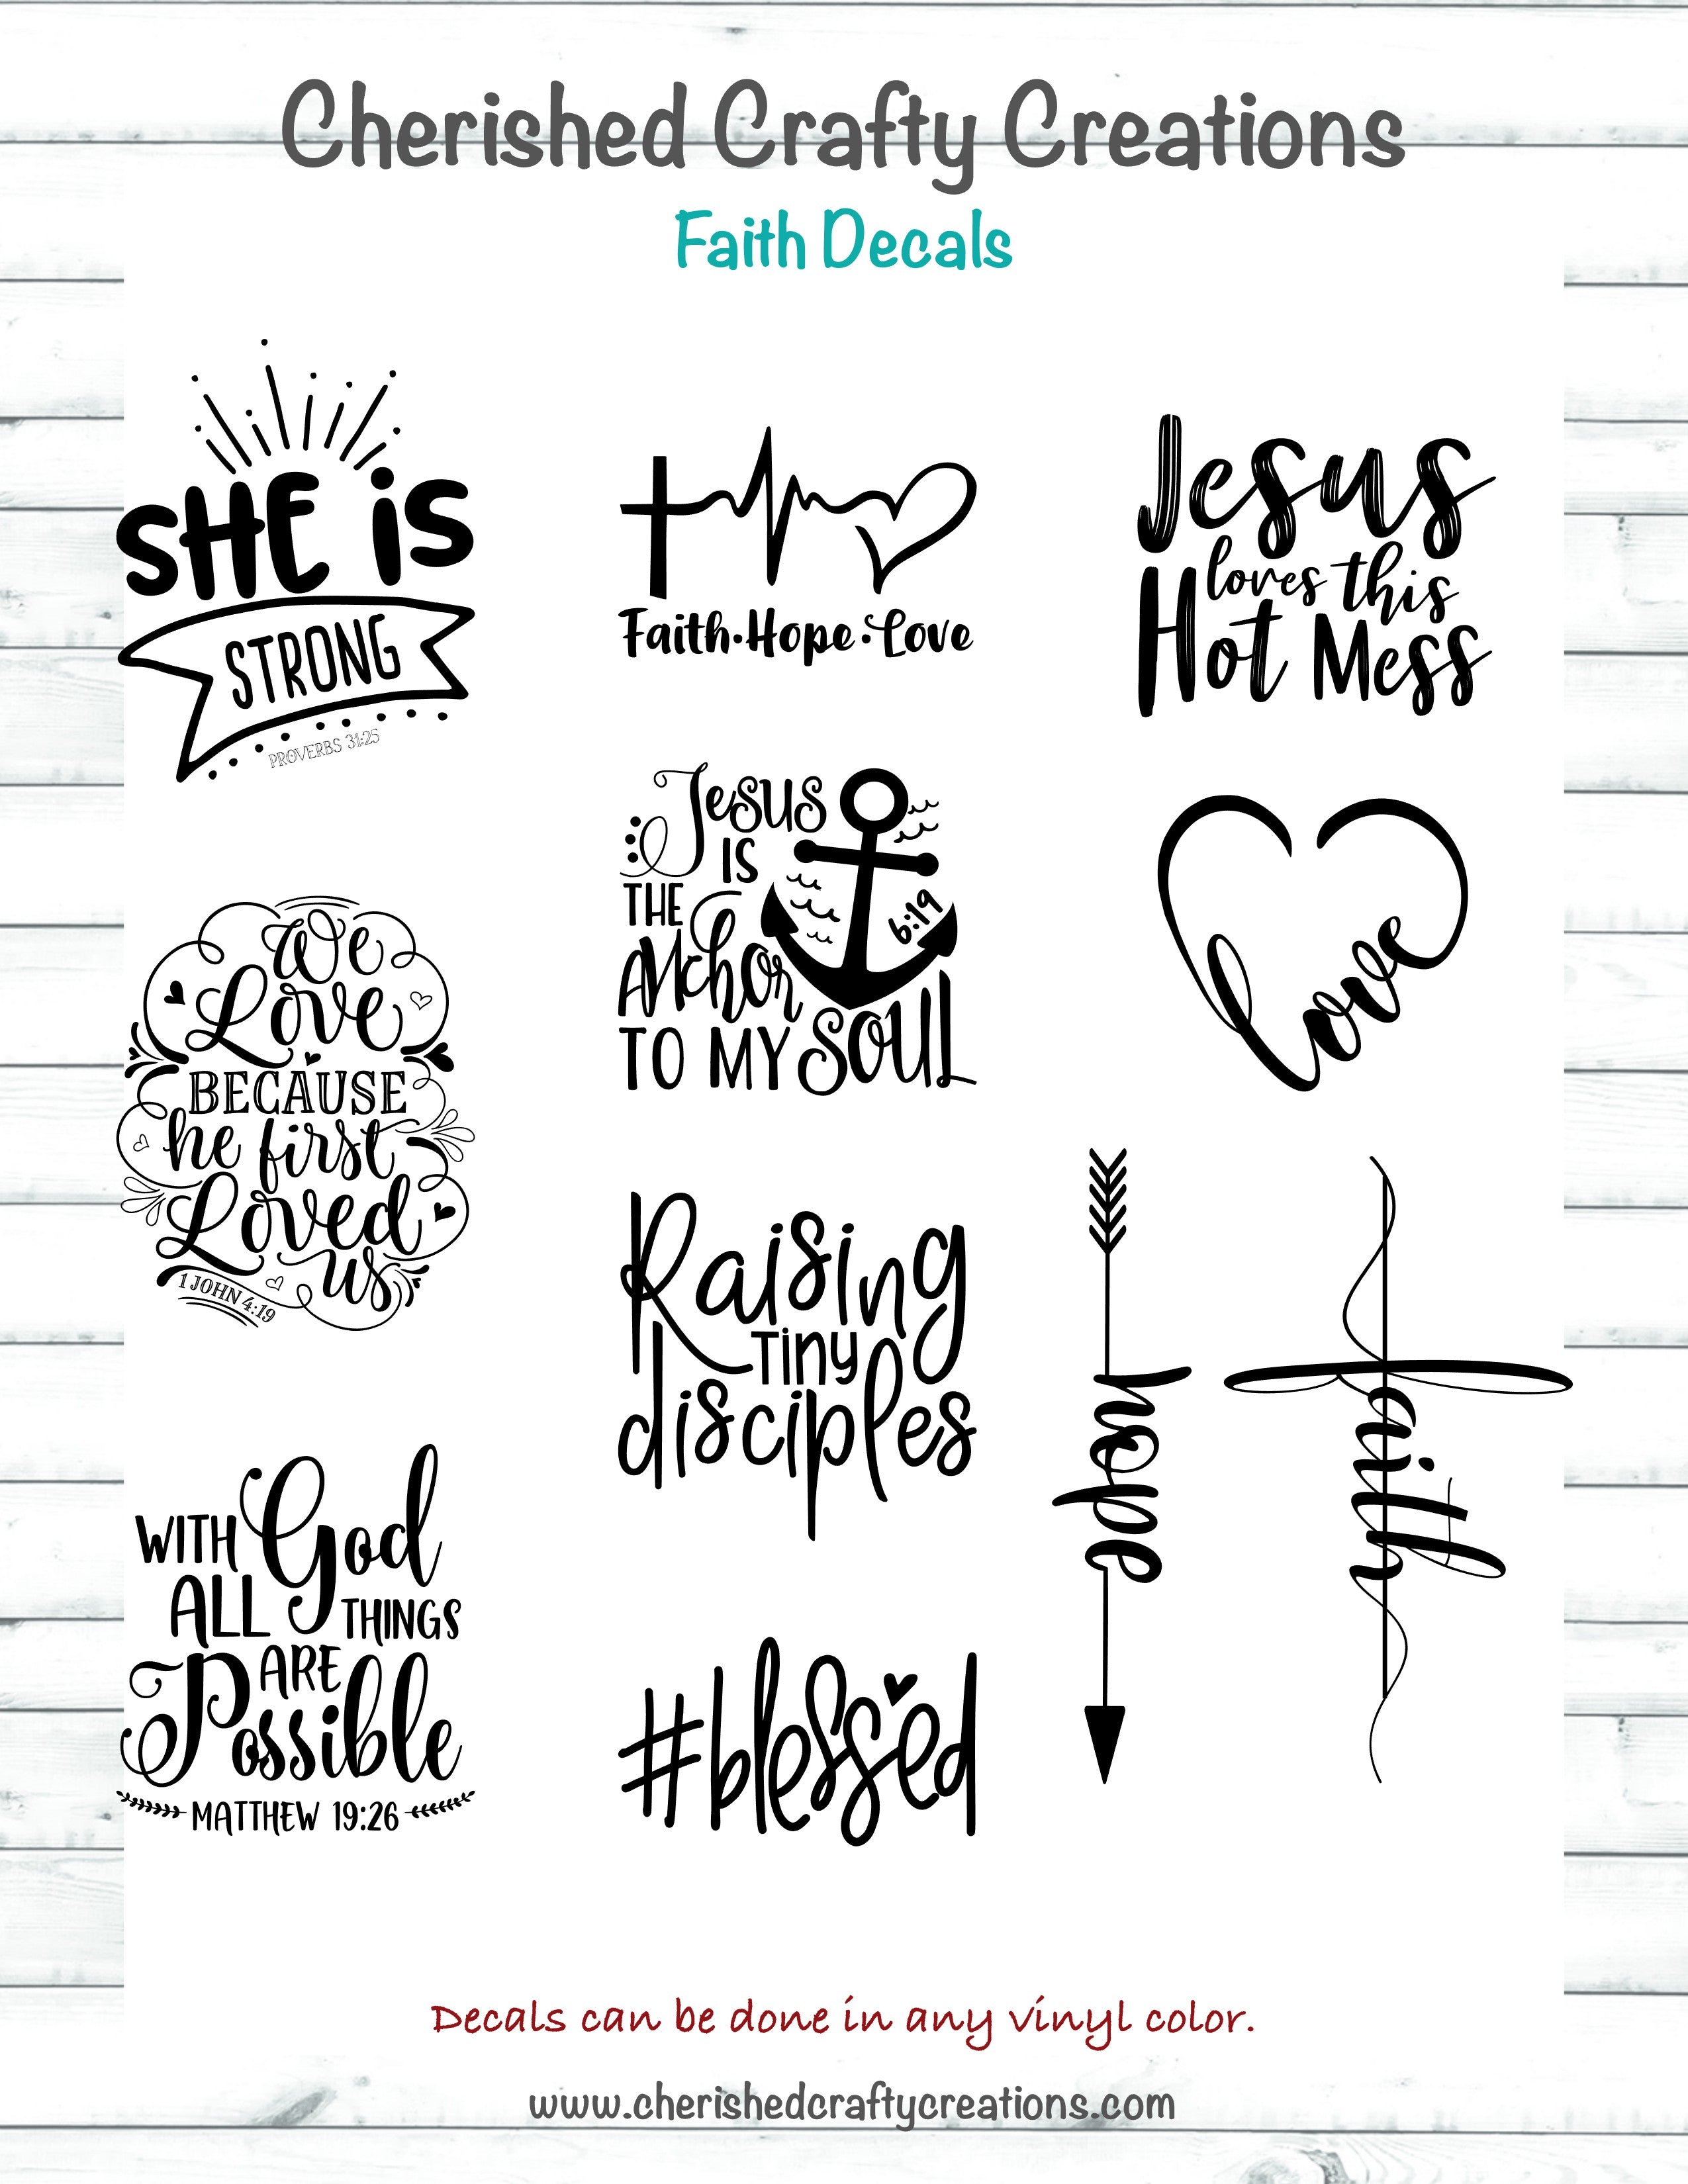 Cherished Crafty Creations
Faith Decals
SHE is
STRONG
PROVERBS 31:25
We
Love
BECAUSE
he first
Loved
us
1 JOHN 4:19
WITH God
ALL THINGS
ARE
Possible
MATTHEW 19:26
Faith·Hope·Love
Jesus
IS
THE
Anchor
6:19
TO MY SOUL
Raising
Tiny
disciples
#blessed
Jesus
loves this
Hot Mess
love
hope
faith
Decals can be done in any vinyl color.
www.cherishedcraftycreations.com